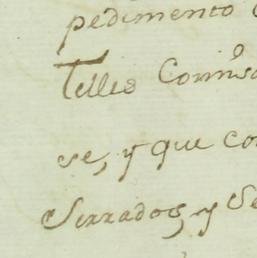 pedimento
Telles Comiso
se, y que co
Serrados, y Se